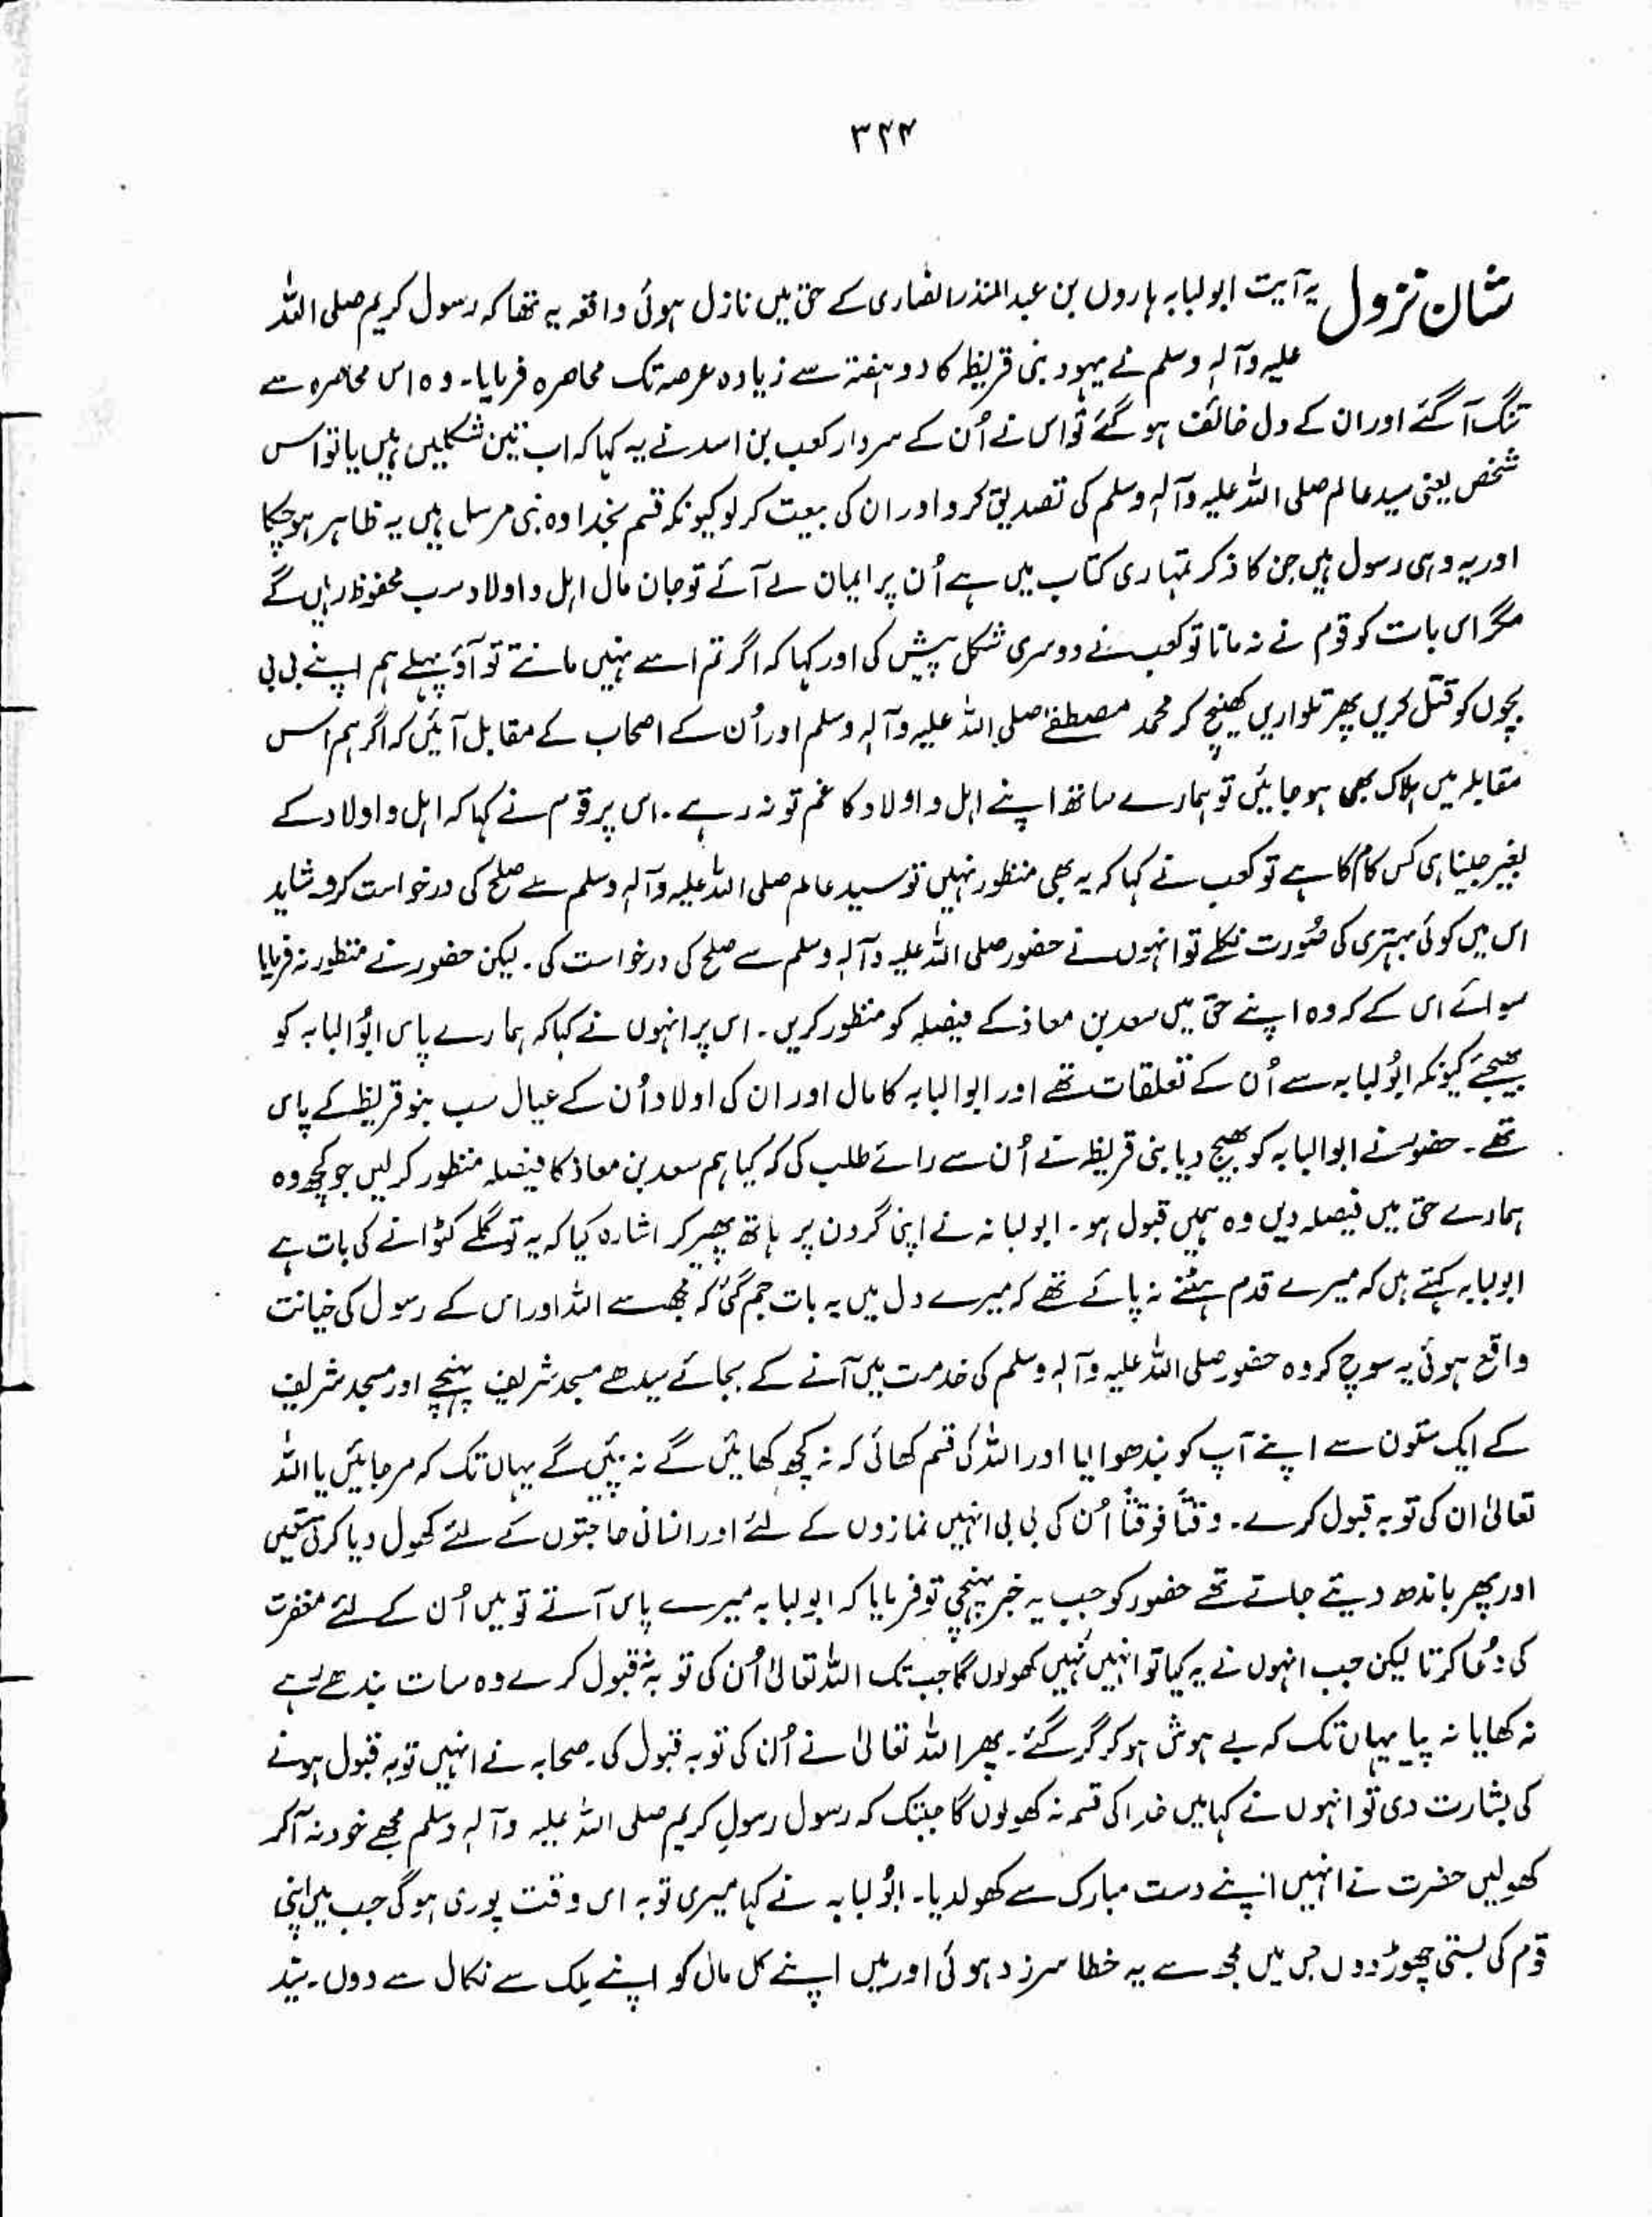 ۳۲۴
شان نزول یہ آیت ابولبابہ ہارون بن عبدالمنذر انصاری کے حق میں نازل ہوئی واقعہ یہ تھا کہ رسول کریم صلی اللہ
علیہ وآلہٖ وسلم نے یہود بنی قریظہ کا دو ہفتہ سے زیادہ عرصہ تک محاصرہ فرمایا۔ وہ اس محاصرہ سے
تنگ آگئے اور ان کے دل خائف ہو گئے تو اس نے اُن کے سردار کعب بن اسد نے یہ کہا کہ اب تین شکلیں ہیں یا تو اس
شخص یعنی سید عالم صلی اللہ علیہ وآلہٖ وسلم کی تصدیق کرو اور ان کی بیعت کر لو کیونکہ قسم بخدا وہ نبی مرسل ہیں یہ ظاہر ہو چکا
اور یہ وہی رسول ہیں جن کا ذکر تمہاری کتاب میں ہے اُن پر ایمان لے آئے تو جان مال اہل و اولاد سب محفوظ رہیں گے
مگر اس بات کو قوم نے نہ مانا تو کعب نے دوسری شکل پیش کی اور کہا کہ اگر تم اسے نہیں مانتے تو آؤ پہلے ہم اپنے بی بی
بچوں کو قتل کریں پھر تلواریں کھینچ کر محمد مصطفےٰ صلی اللہ علیہ وآلہٖ وسلم اور اُن کے اصحاب کے مقابل آئیں کہ اگر ہم اس
مقابلہ میں ہلاک بھی ہو جائیں تو ہمارے ساتھ اپنے اہل و اولاد کا غم تو نہ رہے۔ اس پر قوم نے کہا کہ اہل و اولاد کے
بغیر جینا ہی کس کام کا ہے تو کعب نے کہا کہ یہ بھی منظور نہیں تو سید عالم صلی اللہ علیہ وآلہٖ وسلم سے صلح کی درخواست کرو شاید
اس میں کوئی بہتری کی صُورت نکلے تو انہوں نے حضور صلی اللہ علیہ وآلہٖ وسلم سے صلح کی درخواست کی۔ لیکن حضور نے منظور نہ فرمایا
سوائے اس کے کہ وہ اپنے حق میں سعد بن معاذ کے فیصلہ کو منظور کریں۔ اس پر انہوں نے کہا کہ ہمارے پاس ابُوالبابہ کو
بھیجئے کیونکہ ابُولبابہ سے اُن کے تعلقات تھے اور ابوالبابہ کا مال اور ان کی اولاد اُن کے عیال سب بنو قریظہ کے پاس
تھے۔ حضور نے ابوالبابہ کو بھیج دیا بنی قریظہ نے اُن سے رائے طلب کی کہ کیا ہم سعد بن معاذ کا فیصلہ منظور کر لیں جو کچھ وہ
ہمارے حق میں فیصلہ دیں وہ ہمیں قبول ہو۔ ابولبانہ نے اپنی گردن پر ہاتھ پھیر کر اشارہ کیا کہ یہ تو گلے کٹوانے کی بات ہے
ابولبابہ کہتے ہیں کہ میرے قدم ہٹنے نہ پائے تھے کہ میرے دل میں یہ بات جم گئی کہ مجھ سے اللہ اور اس کے رسول کی خیانت
واقع ہوئی یہ سوچ کر وہ حضور صلی اللہ علیہ وآلہٖ وسلم کی خدمت میں آنے کے بجائے سیدھے مسجد شریف پہنچے اور مسجد شریف
کے ایک ستون سے اپنے آپ کو بندھوایا اور اللہ کی قسم کھائی کہ نہ کچھ کھائیں گے نہ پئیں گے یہاں تک کہ مر جائیں یا اللہ
تعالیٰ ان کی توبہ قبول کرے۔ وقتاً فوقتاً اُن کی بی بی انہیں نمازوں کے لئے اور انسانی حاجتوں کے لئے کھول دیا کرتی تھیں
اور پھر باندھ دیتے جاتے تھے حضور کو جب یہ خبر پہنچی تو فرمایا کہ ابولبابہ میرے پاس آتے تو میں اُن کے لئے مغفرت
کی دُعا کرتا لیکن جب انہوں نے یہ کیا تو انہیں نہیں کھولوں گا جب تک اللہ تعالیٰ اُن کی توبہ نہ قبول کرے وہ سات بندھے رہے
نہ کھایا نہ پیا یہاں تک کہ بے ہوش ہو کر گر گئے۔ پھر اللہ تعالیٰ نے اُن کی توبہ قبول کی۔ صحابہ نے انہیں توبہ قبول ہونے
کی بشارت دی تو انہوں نے کہا میں خدا کی قسم نہ کھولوں گا جبتک کہ رسول رسولِ کریم صلی اللہ علیہ وآلہٖ وسلم مجھے خود نہ آکر
کھولیں حضرت نے انہیں اپنے دست مبارک سے کھولدیا۔ ابُولبابہ نے کہا میری توبہ اس وقت پوری ہو گی جب میں اپنی
قوم کی بستی چھوڑ دوں جس میں مجھ سے یہ خطا سرزد ہوئی اور میں اپنے کل مال کو اپنے مِلک سے نکال سے دوں۔ سیّد